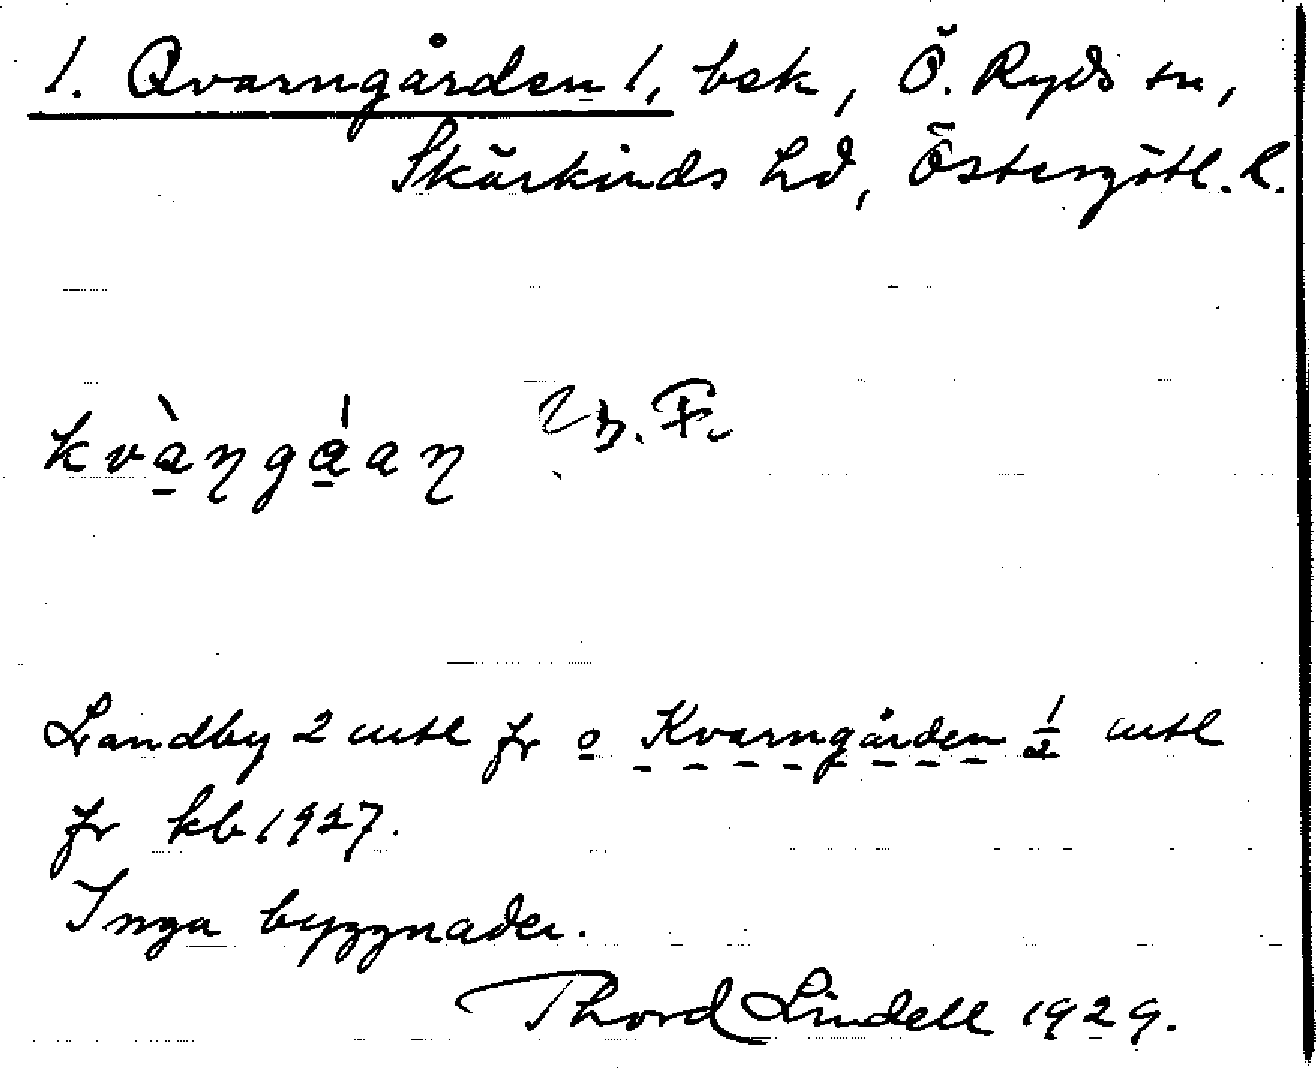 1. Qvarngården 1, bek, Ö. Ryds sn,
Skärkinds hd, Östergötl. l.
kvàŋgáaŋ
Landby 2 mtl fr o Kvarngården 1/2 mtl
fr kb 1927.
Inga byggnader.
Thord Lindell 1929.